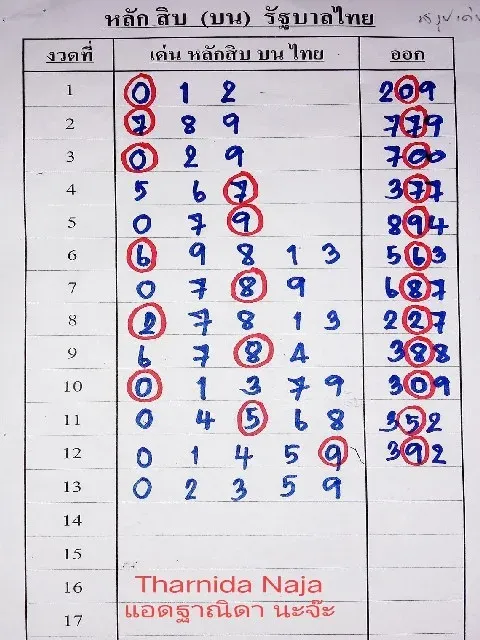 หลัก สิบ (บน) รัฐบาลไทย
งวดที่ เด่น หลักสิบ บน ไทย ออก
1 0 1 2 209
2 7 8 9 779
3 0 2 9 700
4 5 6 7 377
5 0 7 9 894
6 6 9 8 1 3 563
7 0 7 8 9 687
8 2 7 8 1 3 227
9 6 7 8 4 388
10 0 1 3 7 9 309
11 0 4 5 6 8 352
12 0 1 4 5 9 392
13 0 2 3 5 9
14
15
16
Tharnida Naja
แอดฐาณิดา นะจ๊ะ
17